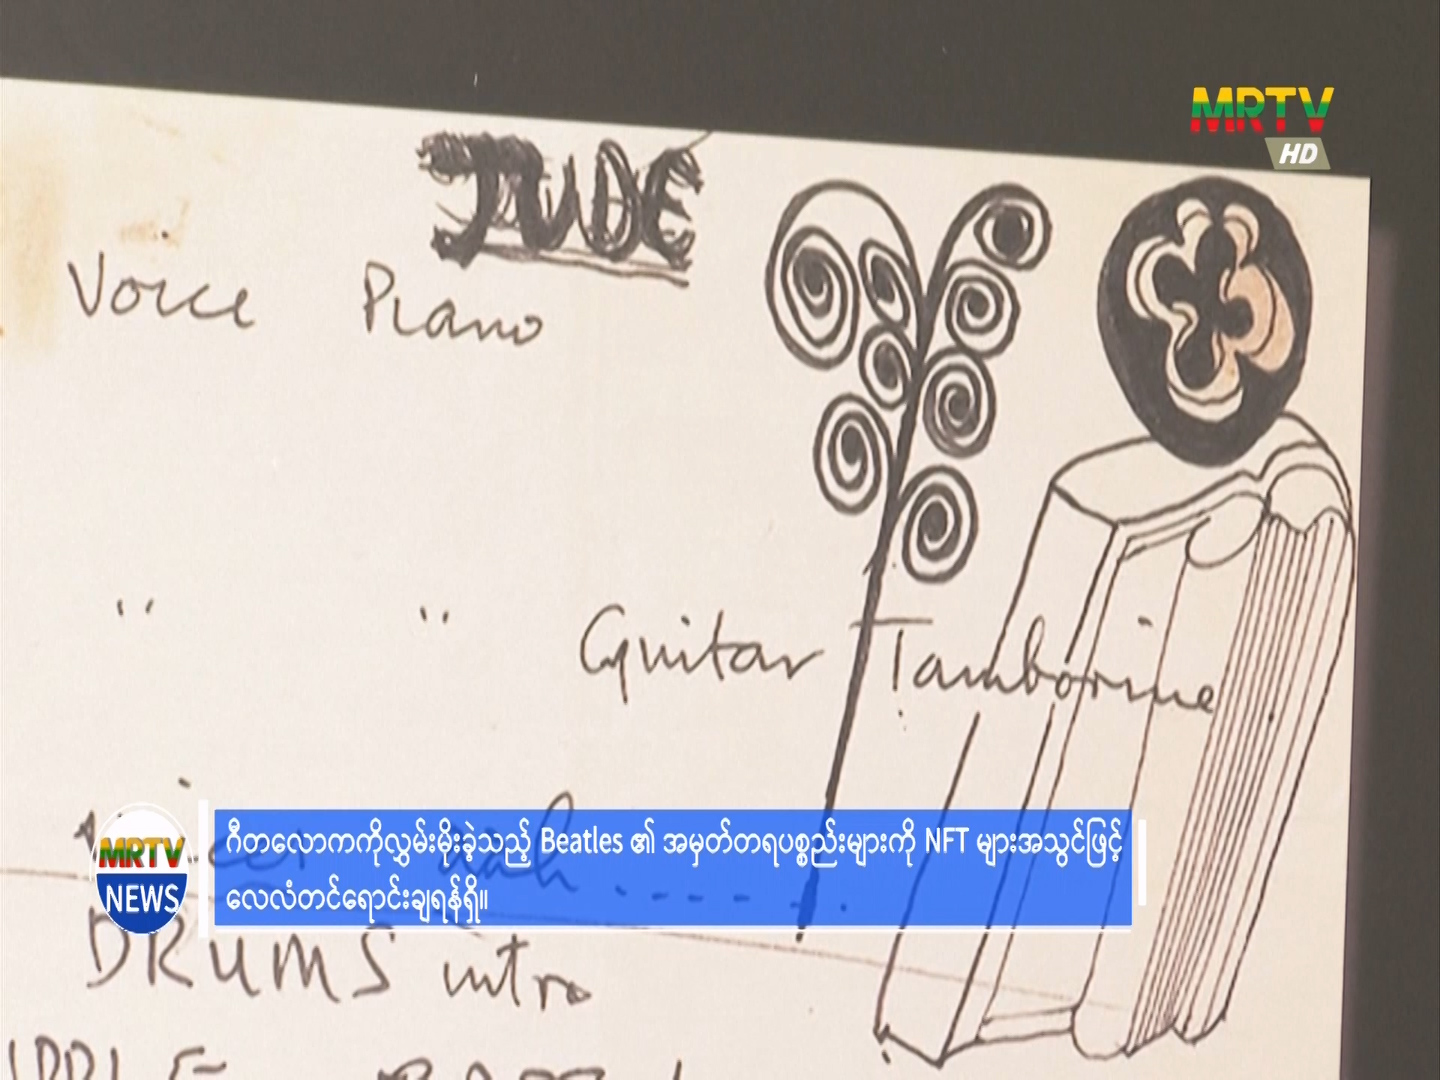 MRTV
HD
JUDE
Voice Piano
" " Guitar Tamborine
DRUMS intro
MRTV
NEWS
ဂီတလောကကိုလွှမ်းမိုးခဲ့သည့် Beatles ၏ အမှတ်တရပစ္စည်းများကို NFT များအသွင်ဖြင့်
လေလံတင်ရောင်းချရန်ရှိ။